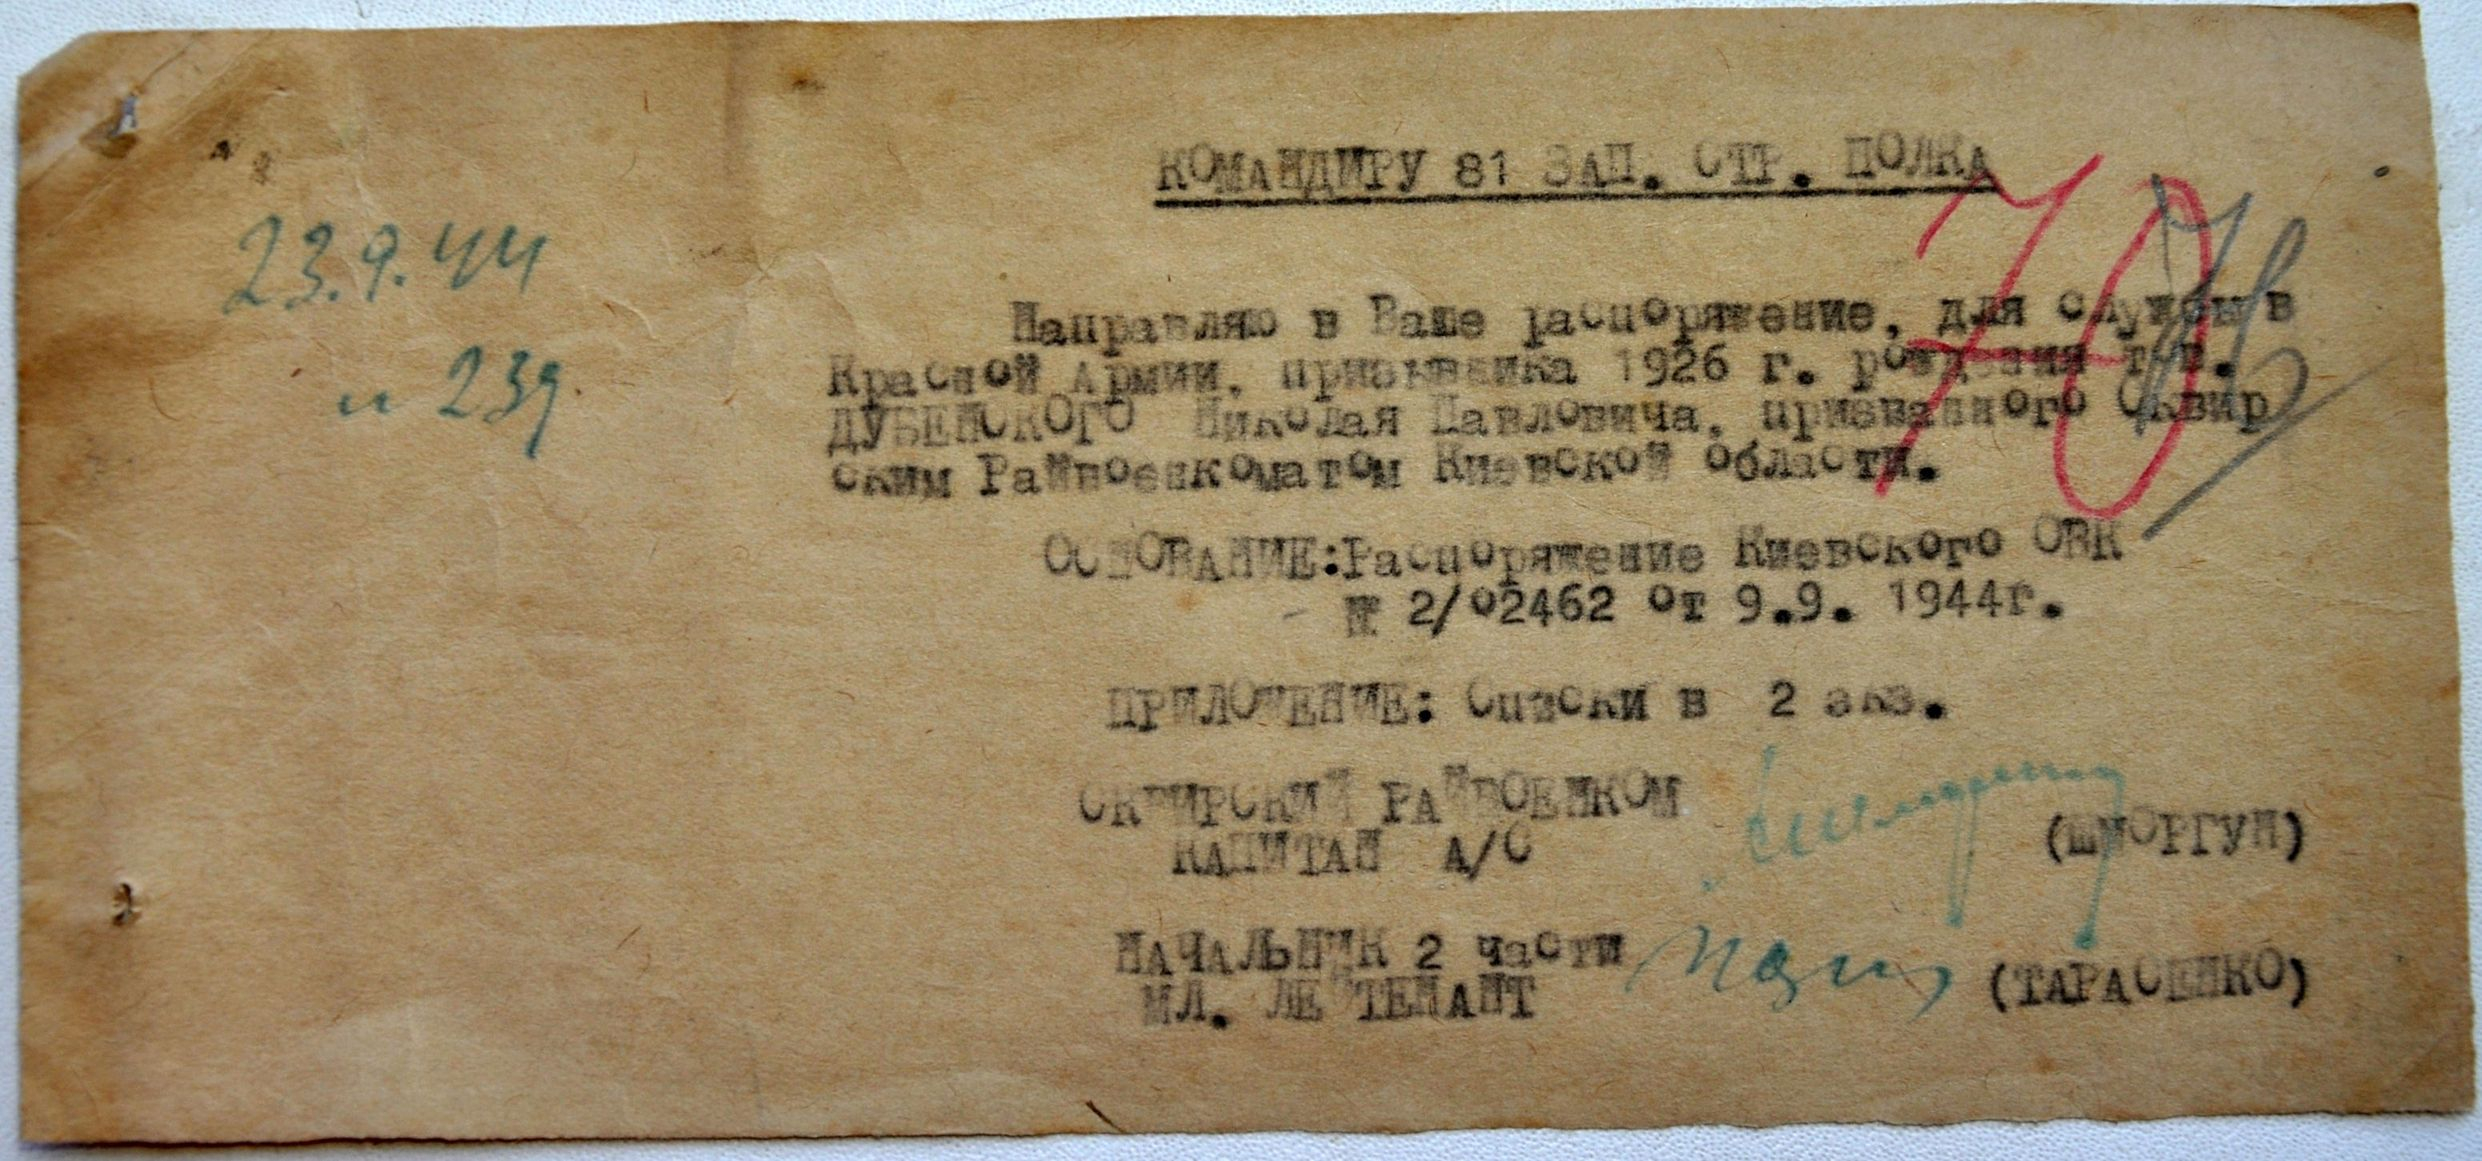 КОМАНДИРУ 81 ЗАП. СТР. ПОЛКА
70
76
23.9.44
и 239
Направляю в Ваше распоряжение, для службы в
Красной Армии, призывника 1926 г. рождения тов.
ДУБЕНСКОГО Николая Павловича, призванного Сквир
ским Райвоенкоматом Киевской области.
ОСНОВАНИЕ:Распоряжение Киевского ОВК
№ 2/02462 от 9.9. 1944г.
ПРИЛОЖЕНИЕ: Списки в 2 экз.
СКВИРСКИЙ РАЙВОЕНКОМ
КАПИТАН А/С (ШМОРГУН)
НАЧАЛЬНИК 2 части
МЛ. ЛЕЙТЕНАНТ (ТАРАСЕНКО)